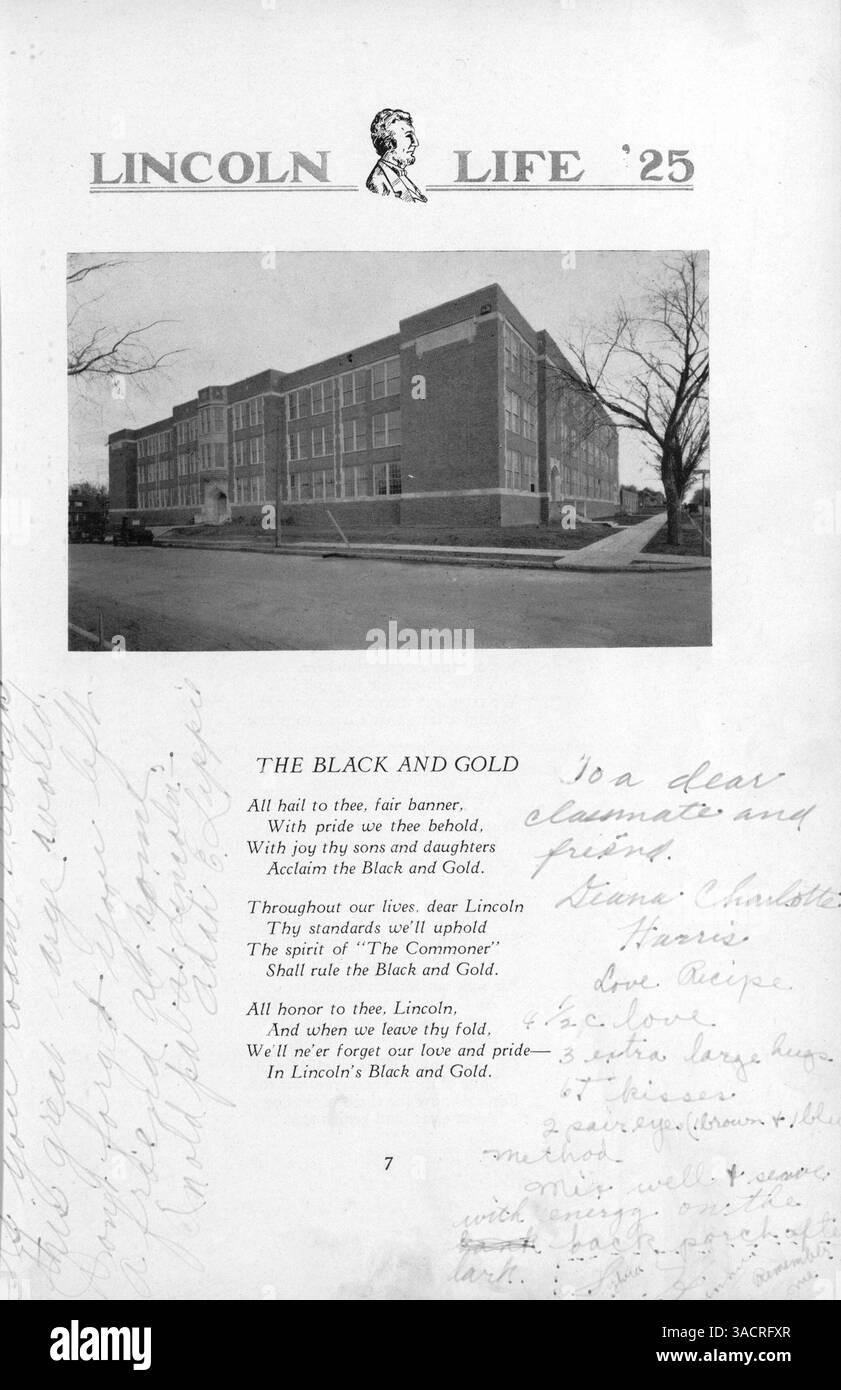 LINCOLN LIFE '25
alamy
THE BLACK AND GOLD
All hail to thee, fair banner,
With pride we thee behold,
With joy thy sons and daughters
Acclaim the Black and Gold.
Throughout our lives, dear Lincoln
Thy standards we'll uphold
The spirit of "The Commoner"
Shall rule the Black and Gold.
All honor to thee, Lincoln,
And when we leave thy fold,
We'll ne'er forget our love and pride—
In Lincoln's Black and Gold.
7
To a dear
classmate and
friend.
Diana Charlotte
Harris
Love Recipe
4 1/2 c love
3 extra large hugs
6 T kisses
2 pair eyes (1 brown + 1 blue
method
Mix well & serve
with energy on the
back porch after
dark.
Remember
me
If you roam through
this great large world
Don't forget you left
a friend at home,
Arnold pal at Lincoln
alamy
Image ID: 3ACRFXR
www.alamy.com